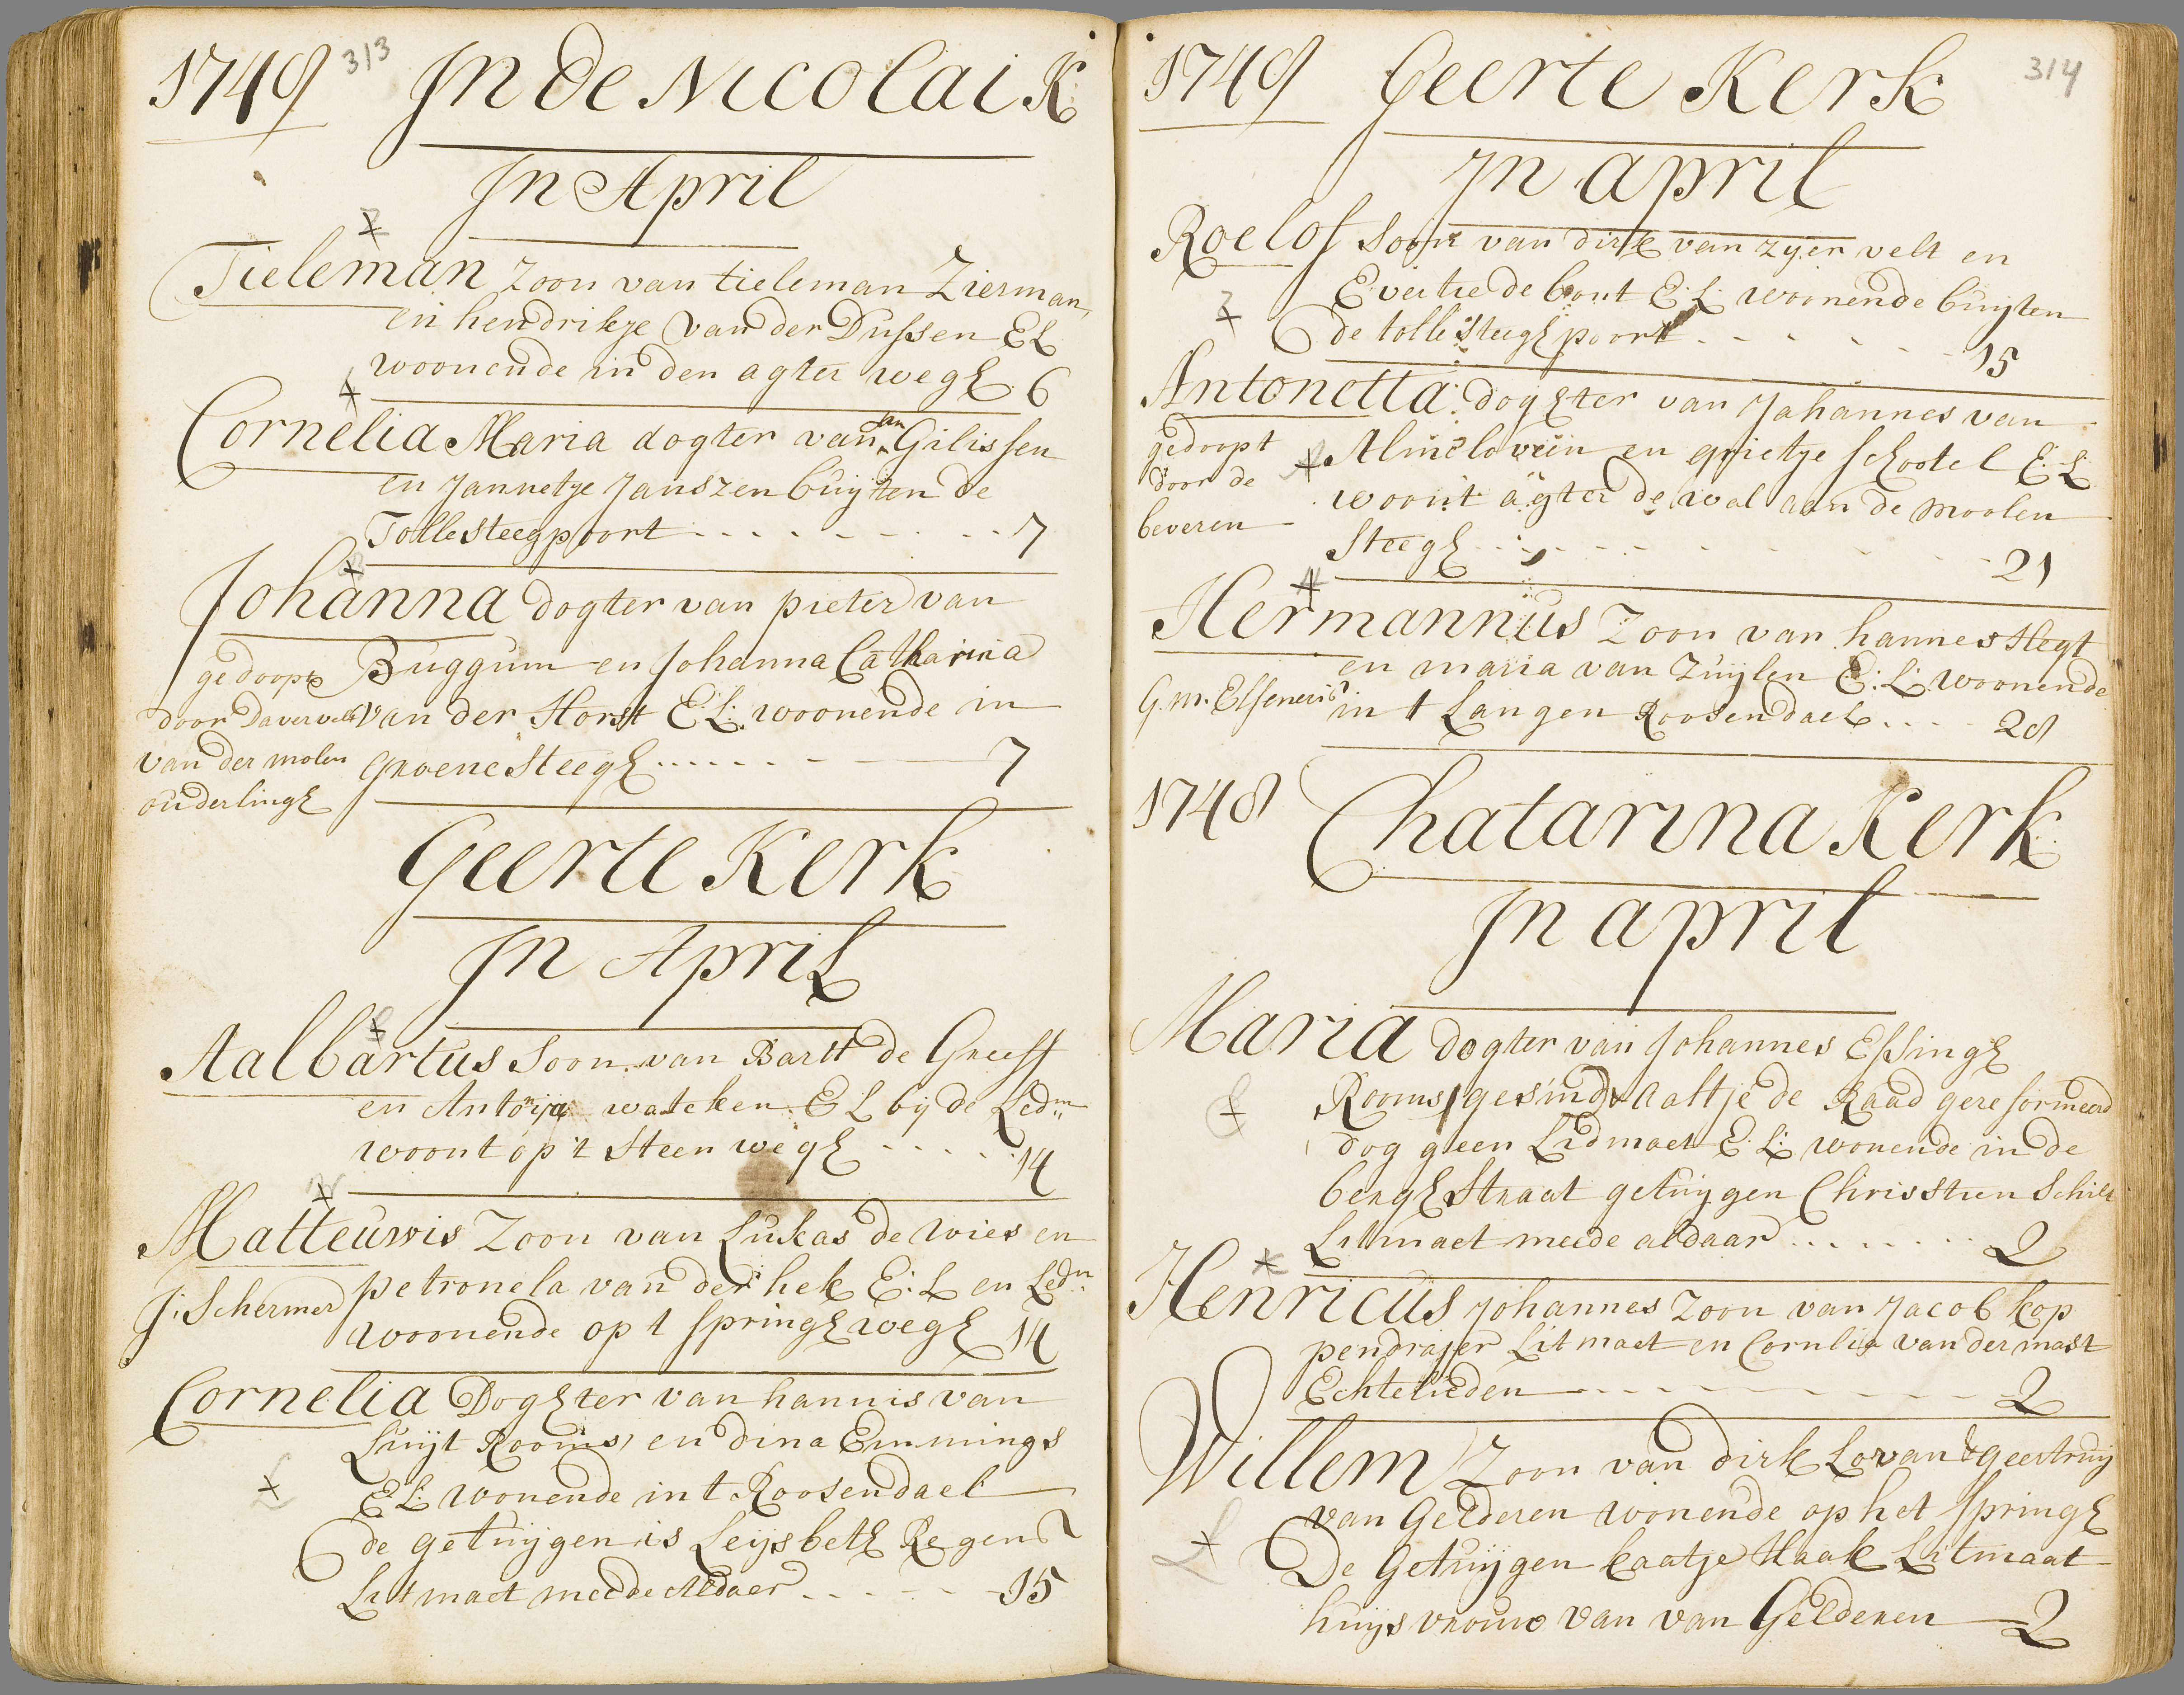 1749 313 In de Nicolai K
In April
Tieleman Zoon van tieleman Zierman,
en hendrikje van der Dussen EL
woonende in den agter wegh 6
Cornelia Maria dogter van Jan Gilissen
en Jannetje Janszen buijten de
Tollesteegpoort 7
Johanna dogter van pieter van
gedoopt Buggum en Johanna Catharina
door Daverveld van der Horst E:L: woonende in
van der molen groene Steegh 7
ouderlingh
Geerte Kerk
In April
Aalbartus Soon van Bartt de Greeff
en Antonija wateken E L bij de Ledm
woont op 't Steen wegh 14
Matteuwis Zoon van Lukas de wies en
J: Schermer petronela van der hek E:L en Ledm
woonende op t springh wegh 14
Cornelia Doghter van hannis van
Luijt Rooms en dina Emmings
E L: wonende in t Roosendael
de getuijgen is Leijsbeth Regen
Litmaet meede Aldaer 15
1749 Geerte Kerk 314
In april
Roelof Soon van dirk van zyer velt en
Evertie de bont E:L: woonende buijten
de tolle steegh poort 15
Antonetta doghter van Johannes van
gedoopt Almeloveen en grietje schootel E:L
door de woont agter de wal aan de moolen
beveren Steegh 21
Hermannus Zoon van hannes Hegt
en maria van Zuijlen E:L: woonende
G.m. Elsenerus in t Langen Roosendael 28
1748 Chatarina Kerk
In april
Maria dogter van Johannes Essingh
Rooms gesind & aaltje de Raad gereformeerd
dog geen Lidmaet E:L: wonende in de
bergh Straat getuijgen Chrisstien Schilt
Litmaet meede aldaar 2
Henricus Johannes Zoon van Jacob kop
pendrajer Litmaet en Cornlia van der mast
Echtelieden 2
Willem Zoon van dirk Lovan & geertruij
van Gelderen wonende op het springh
De Getuijgen kaatje Haak Litmaat
huijsvrouw van van Gelderen 2